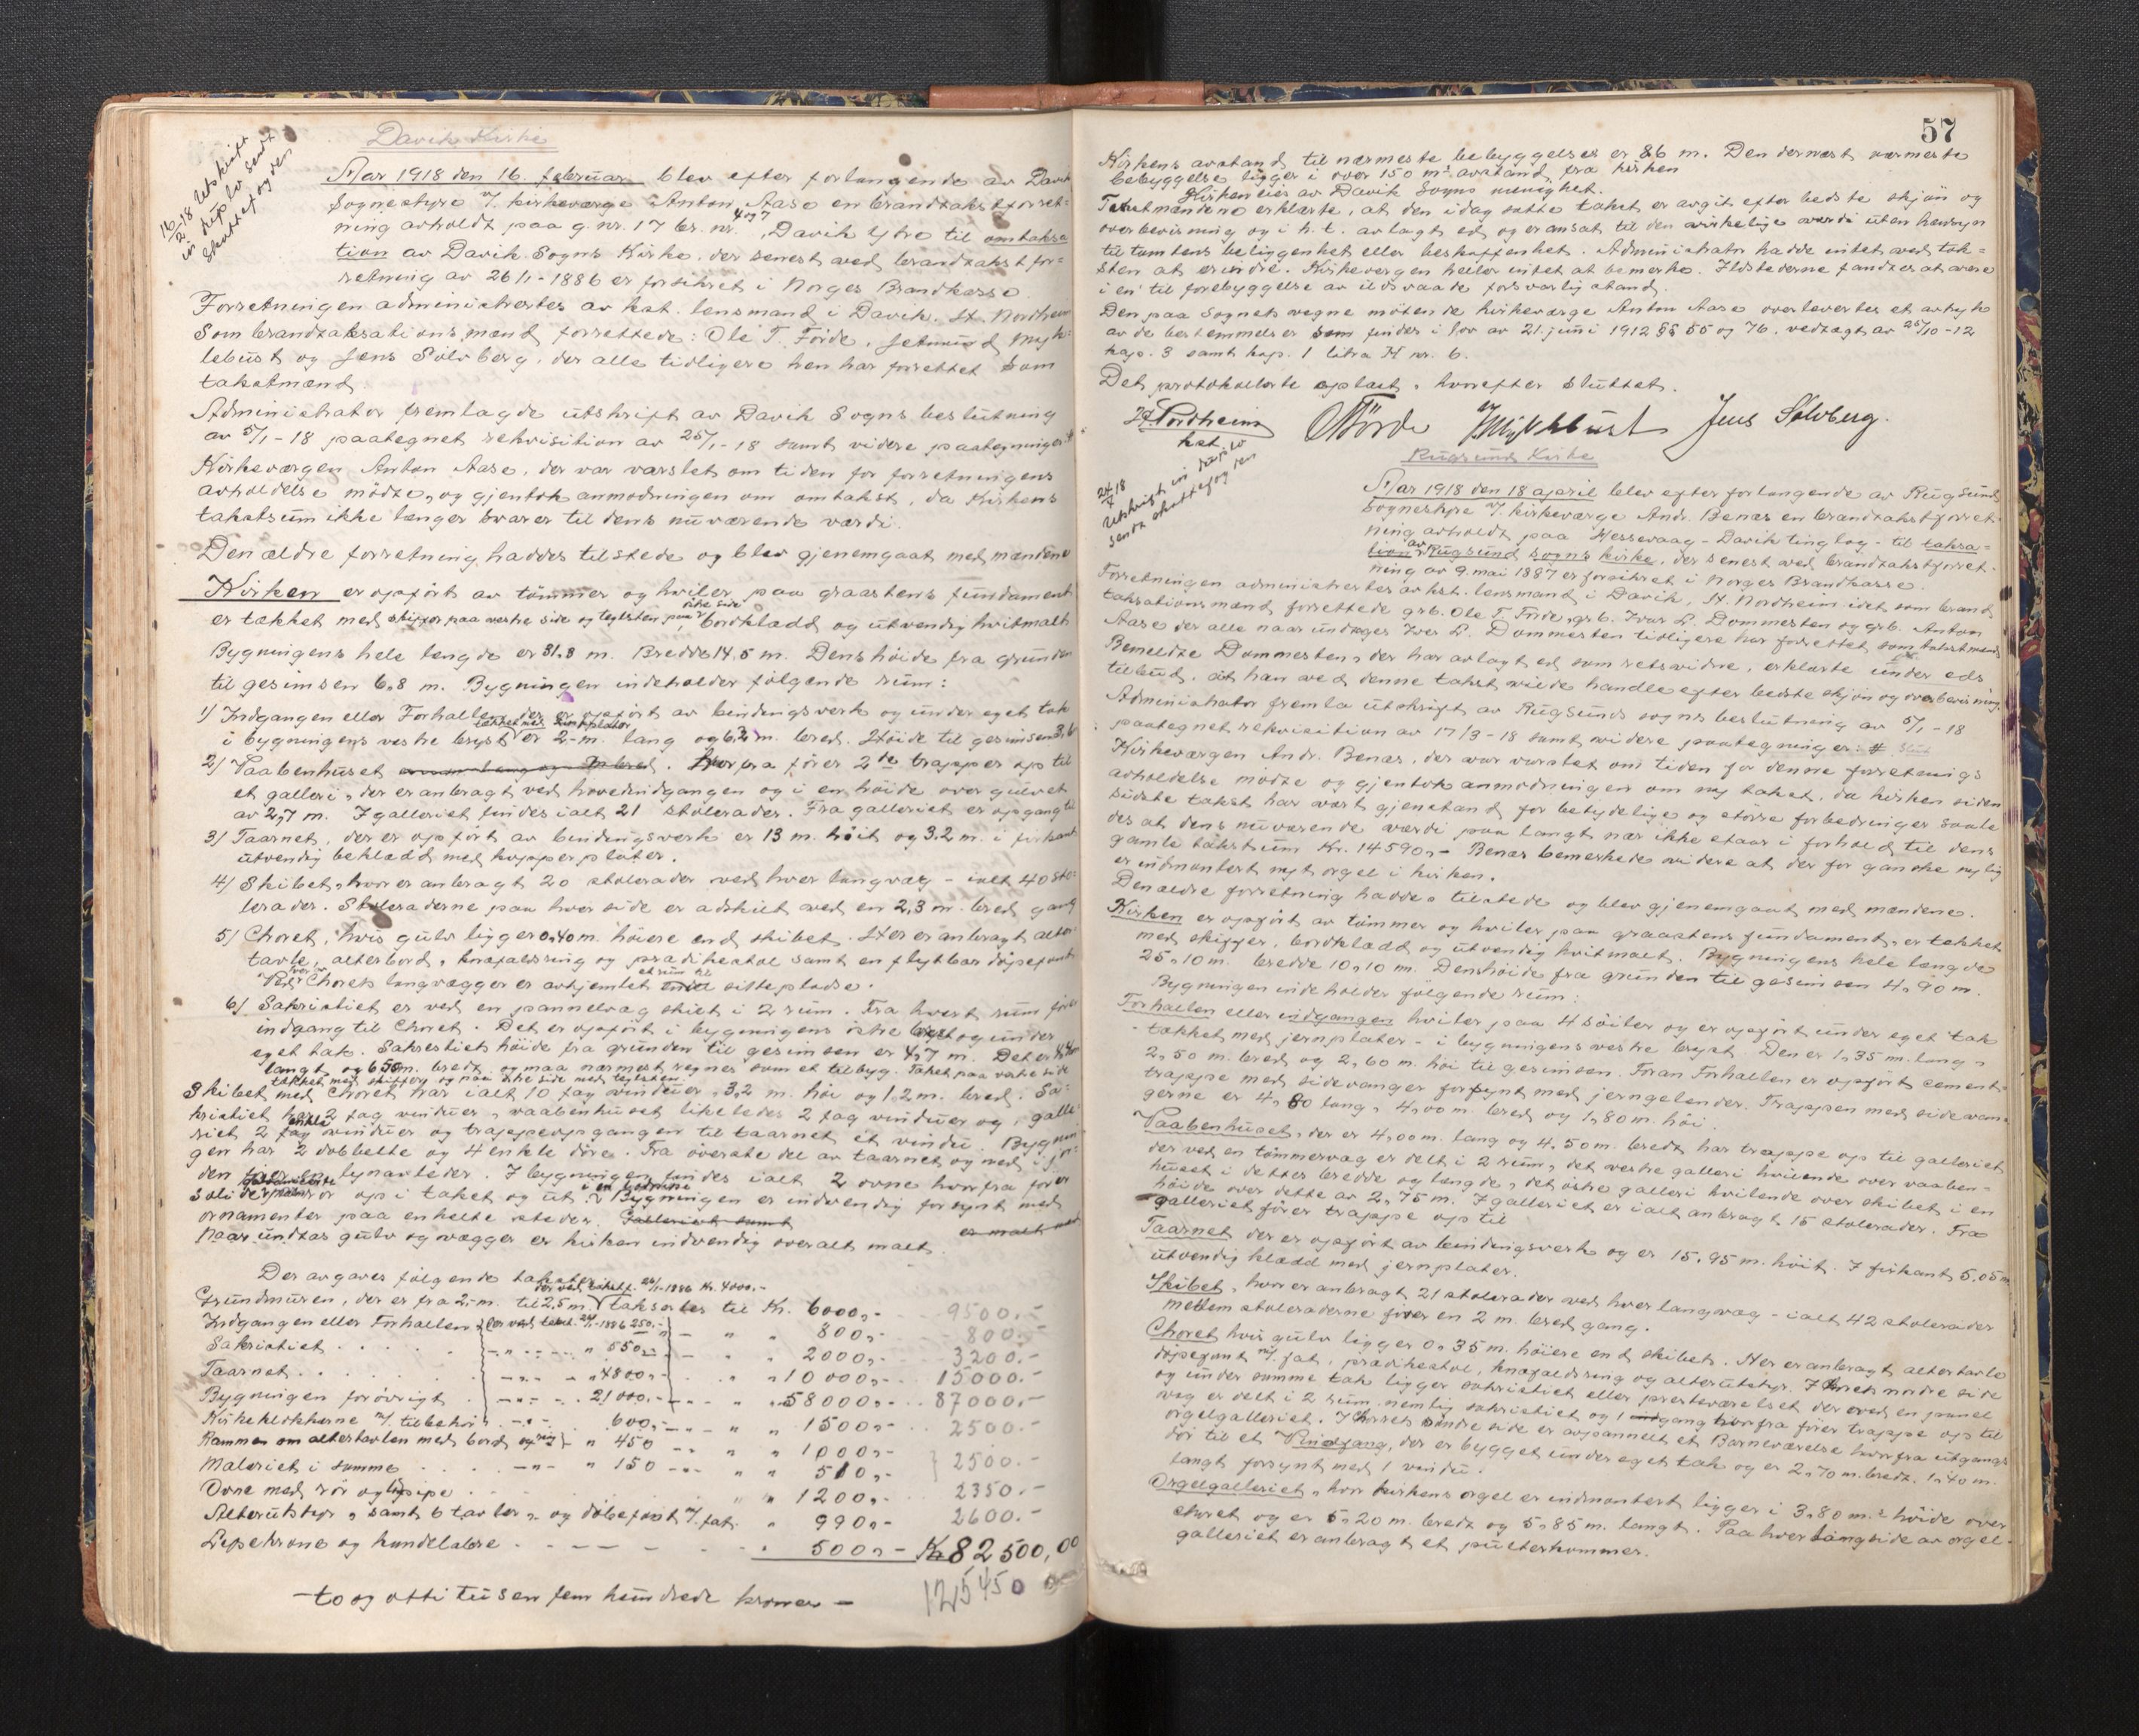 Davik Kirke
16/2 18 Utskrift
in duplo sendt
skattefogden
Aar 1918 den 16. februar blev efter forlangende av Davik
Sognestyre v/ kirkeværge Anton Aase en brandtakstforret=
ning avholdt paa g.nr. 17 br. nr. 4 og 7, Davik Ytre til omtaksa
tion av Davik Sogns Kirke, der senest ved brandtakstfor=
retning av 26/1-1886 er forsikret i Norges Brandkasse.
Forretningen administrertes av kst. lensmand i Davik. H. Nordheim
Som brandtaksationsmænd forrettede: Ole T. Förde, Myk=
lebust og Jens Sölvberg, der alle tidligere hen har forrettet som
takstmænd.
Administrator fremlagde utskrift av Davik Sogns beslutning
av 5/1-18 paategnet rekvisition av 25/1-18 samt videre paategninger.
Kirkeværgen Anton Aase, der var varslet om tiden for forretningens
avholdelse mödte, og gjentok anmodningen om omtakst, da Kirkens
takstsum ikke længer svarer til dens nuværende værdi.
Den ældre forretning haddes tilstede og blev gjenemgaat med mændene
Kirken er opfört av tömmer og hviler paa graastens fundament
er tækket med skiffer paa vestre side og teglsten paa östre side, bordklædd og utvendig hvitmalt
Bygningens hele længde er 31,8 m. Bredde 14,5 m. Dens höide fra grunden
til gesimsen 6,8 m. Bygningen indeholder fölgende rum:
1) Indgangen eller Forhallen der er opfört av bindingsverk og under eget tak
tækket med zinkplater
i bygningens vestre bryst er 2- m. lang og 6,2 m. bred. Höide til gesimsen 3,6
2) Vaabenhuset. Herfra förer 2de trapper op til
et galleri, der er anbragt ved hovedindgangen og i en höide over gulvet
av 2,7 m. I galleriet findes ialt 21 stolerader. Fra galleriet er opgang til
3) Taarnet, der er opfört av bindingsverk er 13 m. höit og 3.2 m. i firkant
utvendig beklædd med kopperplater.
4) Skibet, hvor er anbragt 20 stolerader ved hver langvæg - ialt 40 sto=
lerader. Stoleraderne paa hver side er adskilt ved en 2,3 m. bred gang
5) Choret, hvis gulv ligger 0,40 m. höiere end skibet. Her er anbragt alter=
tavle, alterbord, knæfaldsring og prædikestol samt en flytbar döpefont
Ved Chorets langvægger er avskjemlet et rum til sittepladse.
6) Sakristiet er ved en pannelvæg skilt i 2 rum. Fra hvert rum förer
indgang til Choret. Det er opfört i bygningens östre bryst og under
eget tak. Sakrestiets höide fra grunden til gesimsen er 4,7 m. Det er 4,40
langt og 6,50 m. bredt, og maa nærmest regnes som et tilbyg. Taket paa vestre side
tækket med skiffer og paa östre side med teglsten.
Skibet med Choret har ialt 10 fag vinduer, 3,2 m. höi og 1,2 m. bred. Sa=
kristiet har 2 fag vinduer, vaabenhuset likeledes 2 fag vinduer og galle=
riet 2 enkle vinduer og trappeopgangen til taarnet et vindu. Bygnin
gen har 2 dobbelte og 4 enkle döre. Fra överste del av taarnet og ned i jor=
den förer en lynavleder. I bygningen findes ialt 2 ovne hvorfra förer
solide rör op i taket og ut. Bygningen er indvendig forsynt med
ornamenter paa enkelte steder.
Naar undtas gulv og vægger er kirken indvendig overalt malt.
Der avgaves fölgende takster:
för ved takstf. 26/1-1886 Kr. 4000.-
Grundmuren, der er fra 2,- m. til 2,5 m. taksertes til Kr. 6000,- 9500.-
Indgangen eller Forhallen för ved takst. 26/1-1886 250.- - " " 800,- 800.-
Sakristiet . . . . -"- " 550,- - " " 2000,- 3200.-
Taarnet . . . . -"- " 4800,- " 10000,- 15000.-
Bygningen forövrigt . -"- . 21000,- - " " 58000,- 87000.-
Kirkeklokkerne m/ tilbehör. -"- . 600,- - " " 1500,- 2500.-
Rammen om altertavlen med bord og ring " 450 - " " 1000,-
Maleriet i samme . . . -"- " 150 - " " 510,- 2500.-
Ovne med rör og pipe . . " " 1200,- 2350.-
Alterutstyr, samt 6 tavler, og döbefont m/ fat. " 990,- 2600.-
Lysekrone og kandelabre - - - - - " 500,- Kr 82500,00
- to og otti tusen fem hundrede kroner - 125450
57
Kirkens avstand til nærmeste bebyggelses er 86 m. Den dernæst nærmeste
bebyggelse ligger i over 150 m's avstand fra kirken
Kirken eies av Davik Sogns menighet.
Takstmændene erklærte, at den idag satte takst er avgit efter bedste skjön og
overbevisning og i h. t. avlagt ed og er ansat til den virkelige værdi uten hensyn
til tomtens beliggenhet eller beskaffenhet. Administrator hadde intet ved tak=
sten at erindre. Kirkevergen heller intet at bemerke. Ildstederne fandtes at være
i en til forebyggelse av ildsvaade forsvarlig stand.
Den paa Sognets vegne mötende kirkeværge Anton Aase overlevertes et avtryk
av de bestemmelser som findes i lov av 21. juni 1912 §§ 55 og 76, vedtægt av 25/10-12
kap. 8 samt kap. 1 litra H nr. 6.
Det protokollerte oplæst, hvorefter sluttet.
H. Nordheim
kst.
OTFörde Myklebust Jens Solvberg.
Rugsund Kirke
24/7 18
Utskrift in duplo
sendt skattefogden
Aar 1918 den 18 april blev efter forlangende av Rugsund
Sognestyre v/ kirkeværge Andr. Benæs en brandtakstforret=
ning avholdt paa Hessevaag - Davik tinglag - til taksa=
tion av Rugsund sogns kirke, der senest ved brandtakstforret=
ning av 9. mai 1887 er forsikret i Norges Brandkasse.
Forretningen administrertes av kst. lensmand i Davik, H. Nordheim idet som brand
taksationsmænd forrettede grb. Ole T. Förde, grb. Ivar L. Dommesten og grb. Anton
Aase der alle naar undtages Iver L. Dommesten tidligere har forrettet som takstmænd
Bemeldte Dommesten, der har avlagt ed som retsvidne, erklærte under eds
tilbud, at han ved denne takst vilde handle efter bedste skjön og overbevisning.
Administrator fremla utskrift av Rugsunds sogns beslutning av 5/1-18
paategnet rekvisition av 17/3-18 samt videre paategninger:
Kirkeværgen Andr. Benæs, der var varslet om tiden for denne forretnings
avholdelse mödte og gjentok anmodningen om ny takst, da kirken siden
sidste takst har vært gjenstand for betydelige og större forbedringer saale
des at dens nuværende værdi paa langt nær ikke staar i forhold til dens
gamle takstsum Kr. 14590,- Benæs bemerkede videre at der for ganske nylig
er indmontert nyt orgel i kirken.
Den ældre forretning haddes tilstede og blev gjenemgaat med mændene.
Kirken er opfört av tömmer og hviler paa graastens fundament, er tækket
med skiffer, bordklædt og utvendig hvitmalt. Bygningens hele længde
25,10 m. bredde 10,10 m. Dens höide fra grunden til gesimsen 4,90 m.
Bygningen indeholder fölgende rum:
Forhallen eller indgangen hviler paa 4 söiler og er opfört under eget tak
- tækket med jernplater - i bygningens vestre bryst. Den er 1,35 m. lang,
2,50 m. bred og 2,60 m. höi til gesimsen. Foran Forhallen er opfört cement=
trappe med sidevanger forsynt med jerngelender. Trappen med sidevan=
gerne er 4,80 lang, 4,00 m. bred og 1,80 m. höi.
Vaabenhuset, der er 4,00 m. lang og 4,50 m. bredt har trappe op til galleriet
der ved en tömmervæg er delt i 2 rum, det vestre galleri hvilende over vaaben=
huset i dettes bredde og længde, det östre galleri hvilende over skibet i en
höide over dette av 2,75 m. I galleriet er ialt anbragt 15 stolerader. Fra
galleriet förer trappe op til
Taarnet der er opfört av bindingsverk og er 15,95 m. höit. I firkant 5,05 m
utvendig klædd med jernplater.
Skibet, hvor er anbragt 21 stolerader ved hver langvæg - ialt 42 stolerader
mellem stoleraderne förer en 2 m. bred gang.
Choret hvis gulv ligger 0,35 m. höiere end skibet. Her er anbragt altertavle
döpefont m/ fat, prædikestol, knæfaldsring og alterutstyr. I Chorets nordre side
og under samme tak ligger sakristiet eller presteværelset der ved en pannel
væg er delt i 2 rum, nemlig sakristiet og 1 gang hvorfra förer trappe op til
orgelgalleriet. I Chorets söndre side er avpannelt et Barneværelse hvorfra utgangs
dör til et Vindfang, der er bygget under eget tak og er 2,70 m. bredt, 1,40 m.
langt forsynt med 1 vindu.
Orgelgalleriet, hvor kirkens orgel er indmontert ligger i 3,80 m.s höide over
choret og er 5,20 m. bredt og 5,85 m. langt. Paa hver langside av orgel=
galleriet er anbragt et pulterkammer.